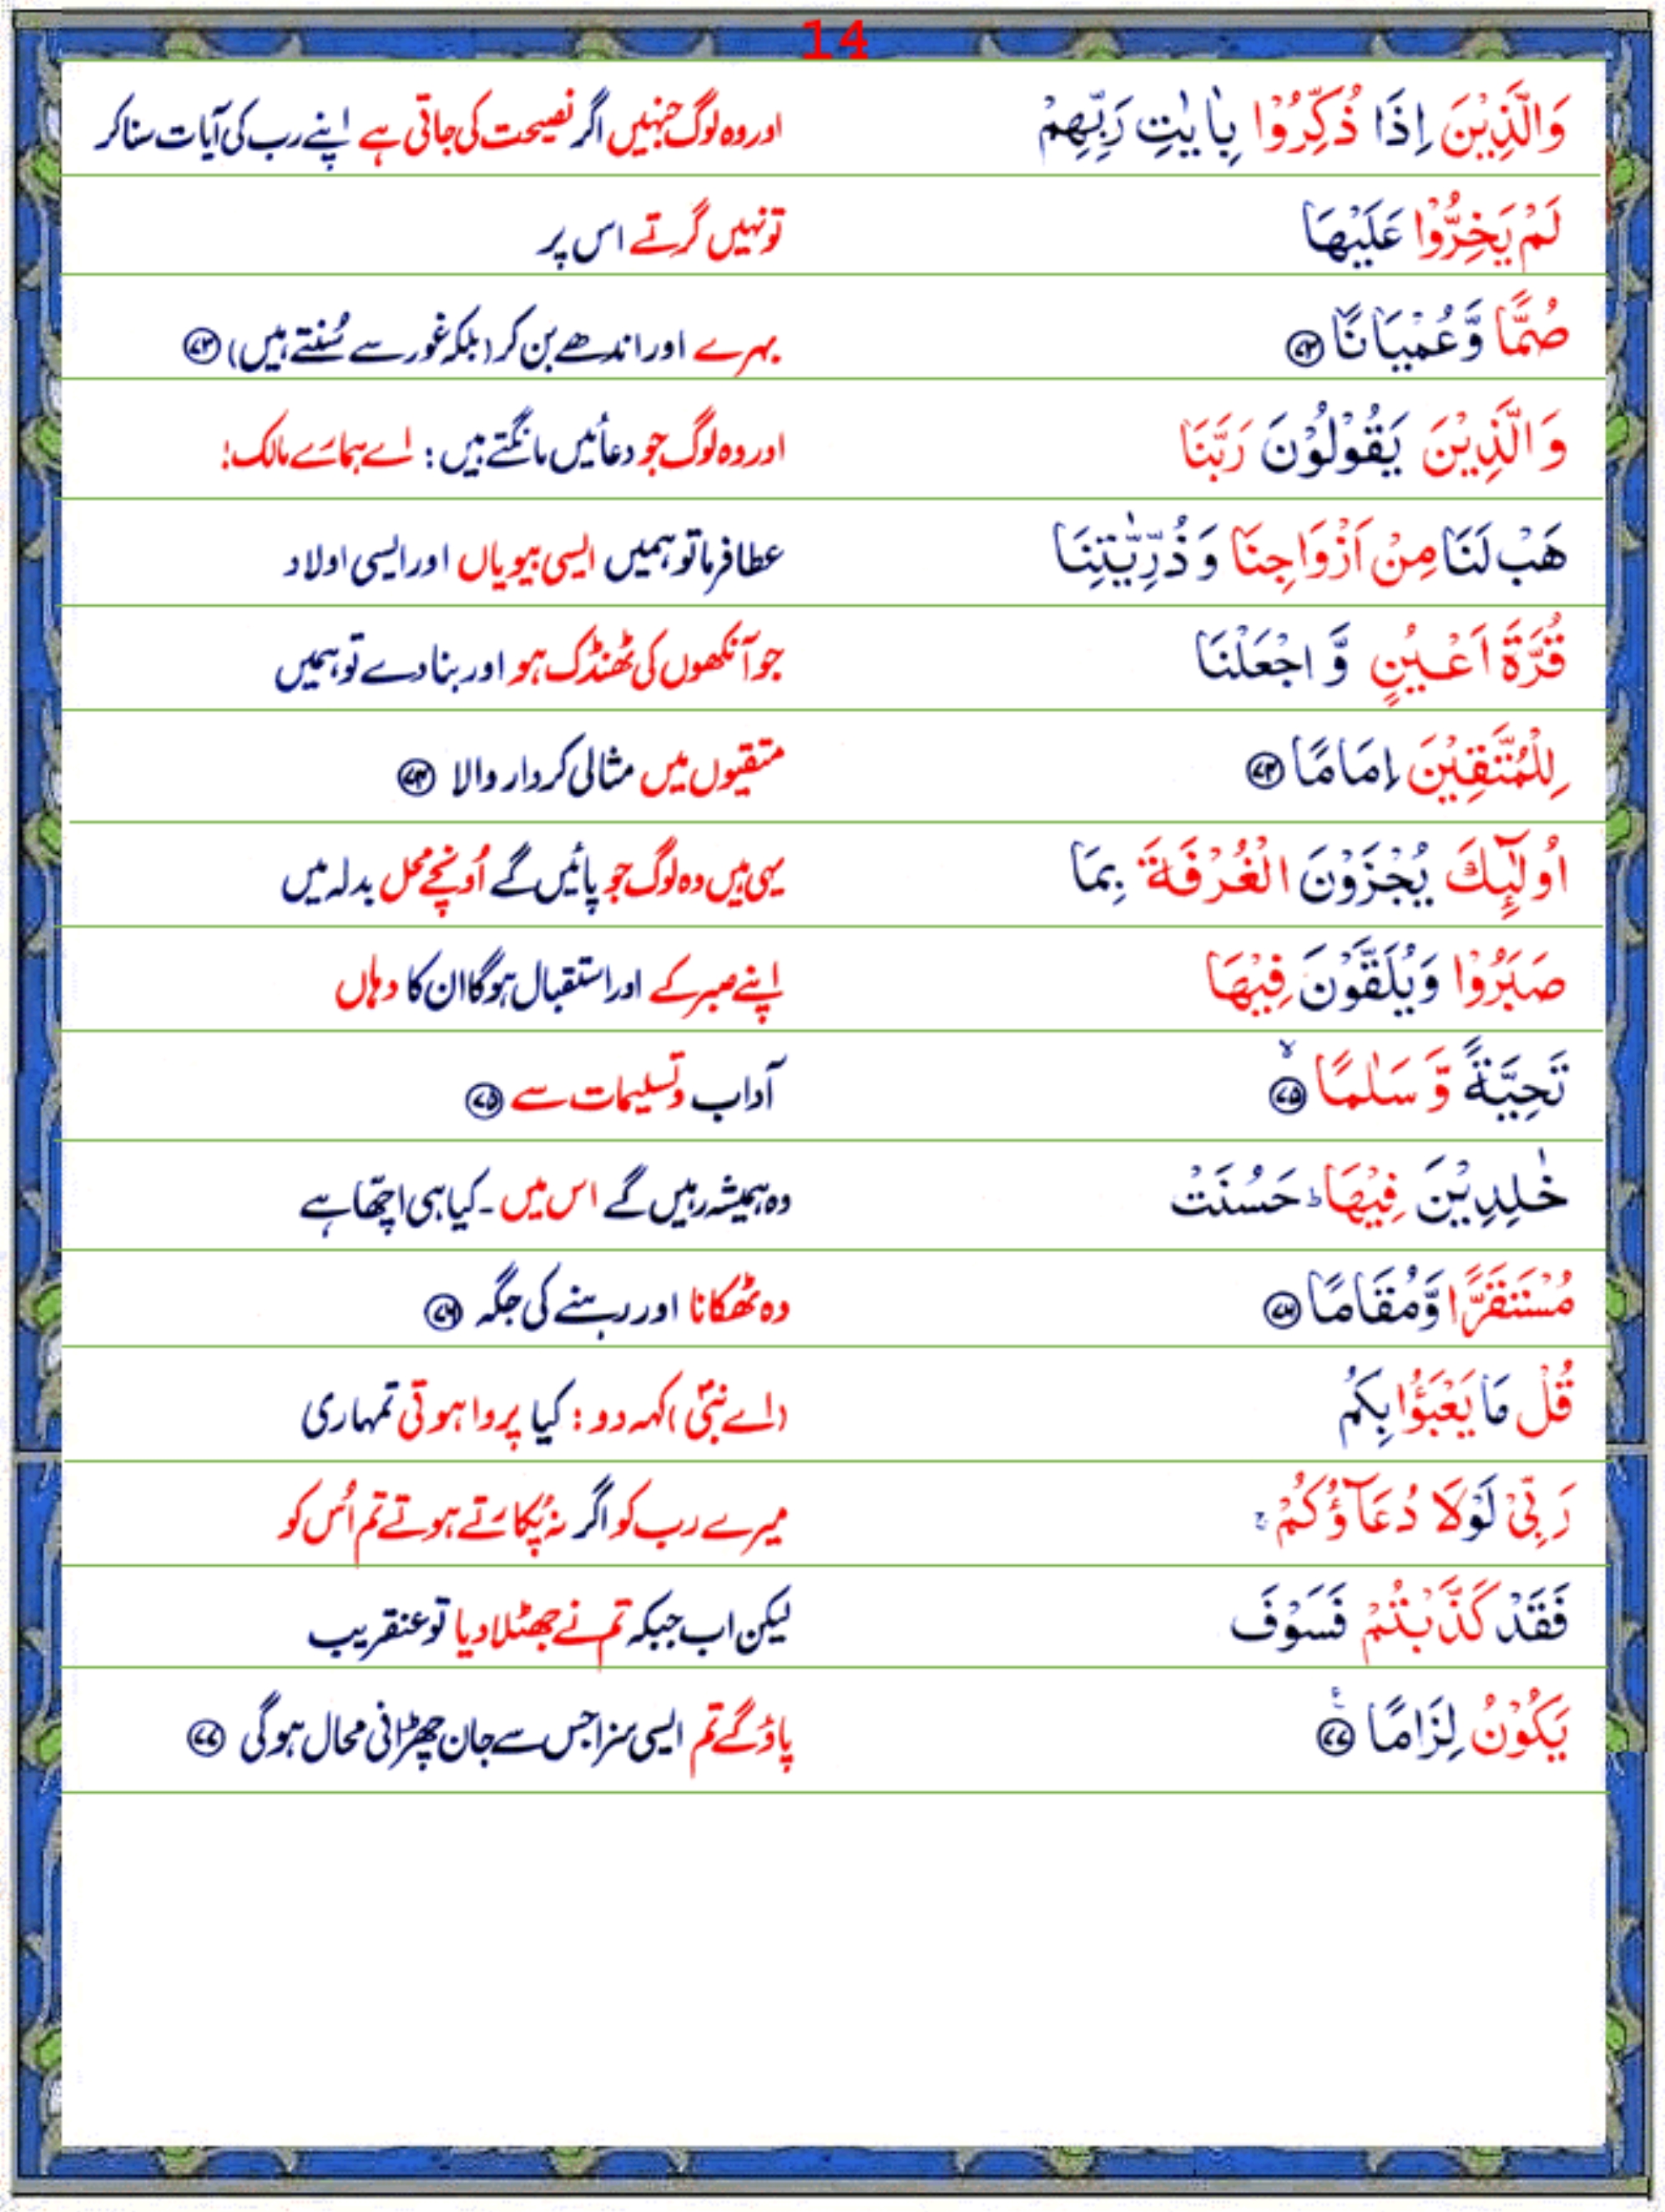 14
وَالَّذِيْنَ اِذَا ذُكِّرُوْا بِاٰيٰتِ رَبِّهِمْ اور وہ لوگ جنہیں اگر نصیحت کی جاتی ہے اپنے رب کی آیات سنا کر
لَمْ يَخِرُّوْا عَلَيْهَا تو نہیں گرتے اس پر
صُمًّا وَّعُمْيَانًا ۝۷۳ بہرے اور اندھے بن کر (بلکہ غور سے سُنتے ہیں) ۝۷۳
وَالَّذِيْنَ يَقُوْلُوْنَ رَبَّنَا اور وہ لوگ جو دعائیں مانگتے ہیں: اے ہمارے مالک!
هَبْ لَنَا مِنْ اَزْوَاجِنَا وَذُرِّيّٰتِنَا عطا فرما تو ہمیں ایسی بیویاں اور ایسی اولاد
قُرَّةَ اَعْيُنٍ وَّاجْعَلْنَا جو آنکھوں کی ٹھنڈک ہو اور بنا دے تو ہمیں
لِلْمُتَّقِيْنَ اِمَامًا ۝۷۴ متقیوں میں مثالی کردار والا ۝۷۴
اُولٰٓئِكَ يُجْزَوْنَ الْغُرْفَةَ بِمَا یہی ہیں وہ لوگ جو پائیں گے اُونچے محل بدلہ میں
صَبَرُوْا وَيُلَقَّوْنَ فِيْهَا اپنے صبر کے اور استقبال ہوگا ان کا وہاں
تَحِيَّةً وَّسَلٰمًا ۝۷۵ۙ آداب وتسلیمات سے ۝۷۵
خٰلِدِيْنَ فِيْهَا ؕ حَسُنَتْ وہ ہمیشہ رہیں گے اس میں۔ کیا ہی اچھّا ہے
مُسْتَقَرًّا وَّمُقَامًا ۝۷۶ وہ ٹھکانا اور رہنے کی جگہ ۝۷۶
قُلْ مَا يَعْبَؤُا بِكُمْ (اے نبیؐ) کہہ دو: کیا پروا ہوتی تمہاری
رَبِّيْ لَوْلَا دُعَآؤُكُمْ ۚ میرے رب کو اگر نہ پُکارتے ہوتے تم اُس کو
فَقَدْ كَذَّبْتُمْ فَسَوْفَ لیکن اب جبکہ تم نے جھٹلا دیا تو عنقریب
يَكُوْنُ لِزَامًا ۝۷۷ۧ پاؤ گے تم ایسی سزا جس سے جان چھڑانی محال ہوگی ۝۷۷